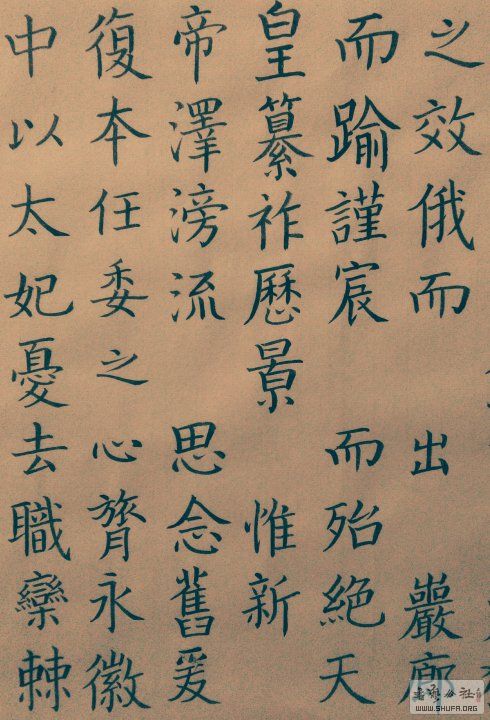 之效俄而出巖廊
而踰謹宸而殆絶天
皇纂祚歷景惟新
帝澤滂流思念舊爰
復本任委之心膂永徽
中以太妃憂去職欒棘
書法公社
WWW.SHUFA.ORG